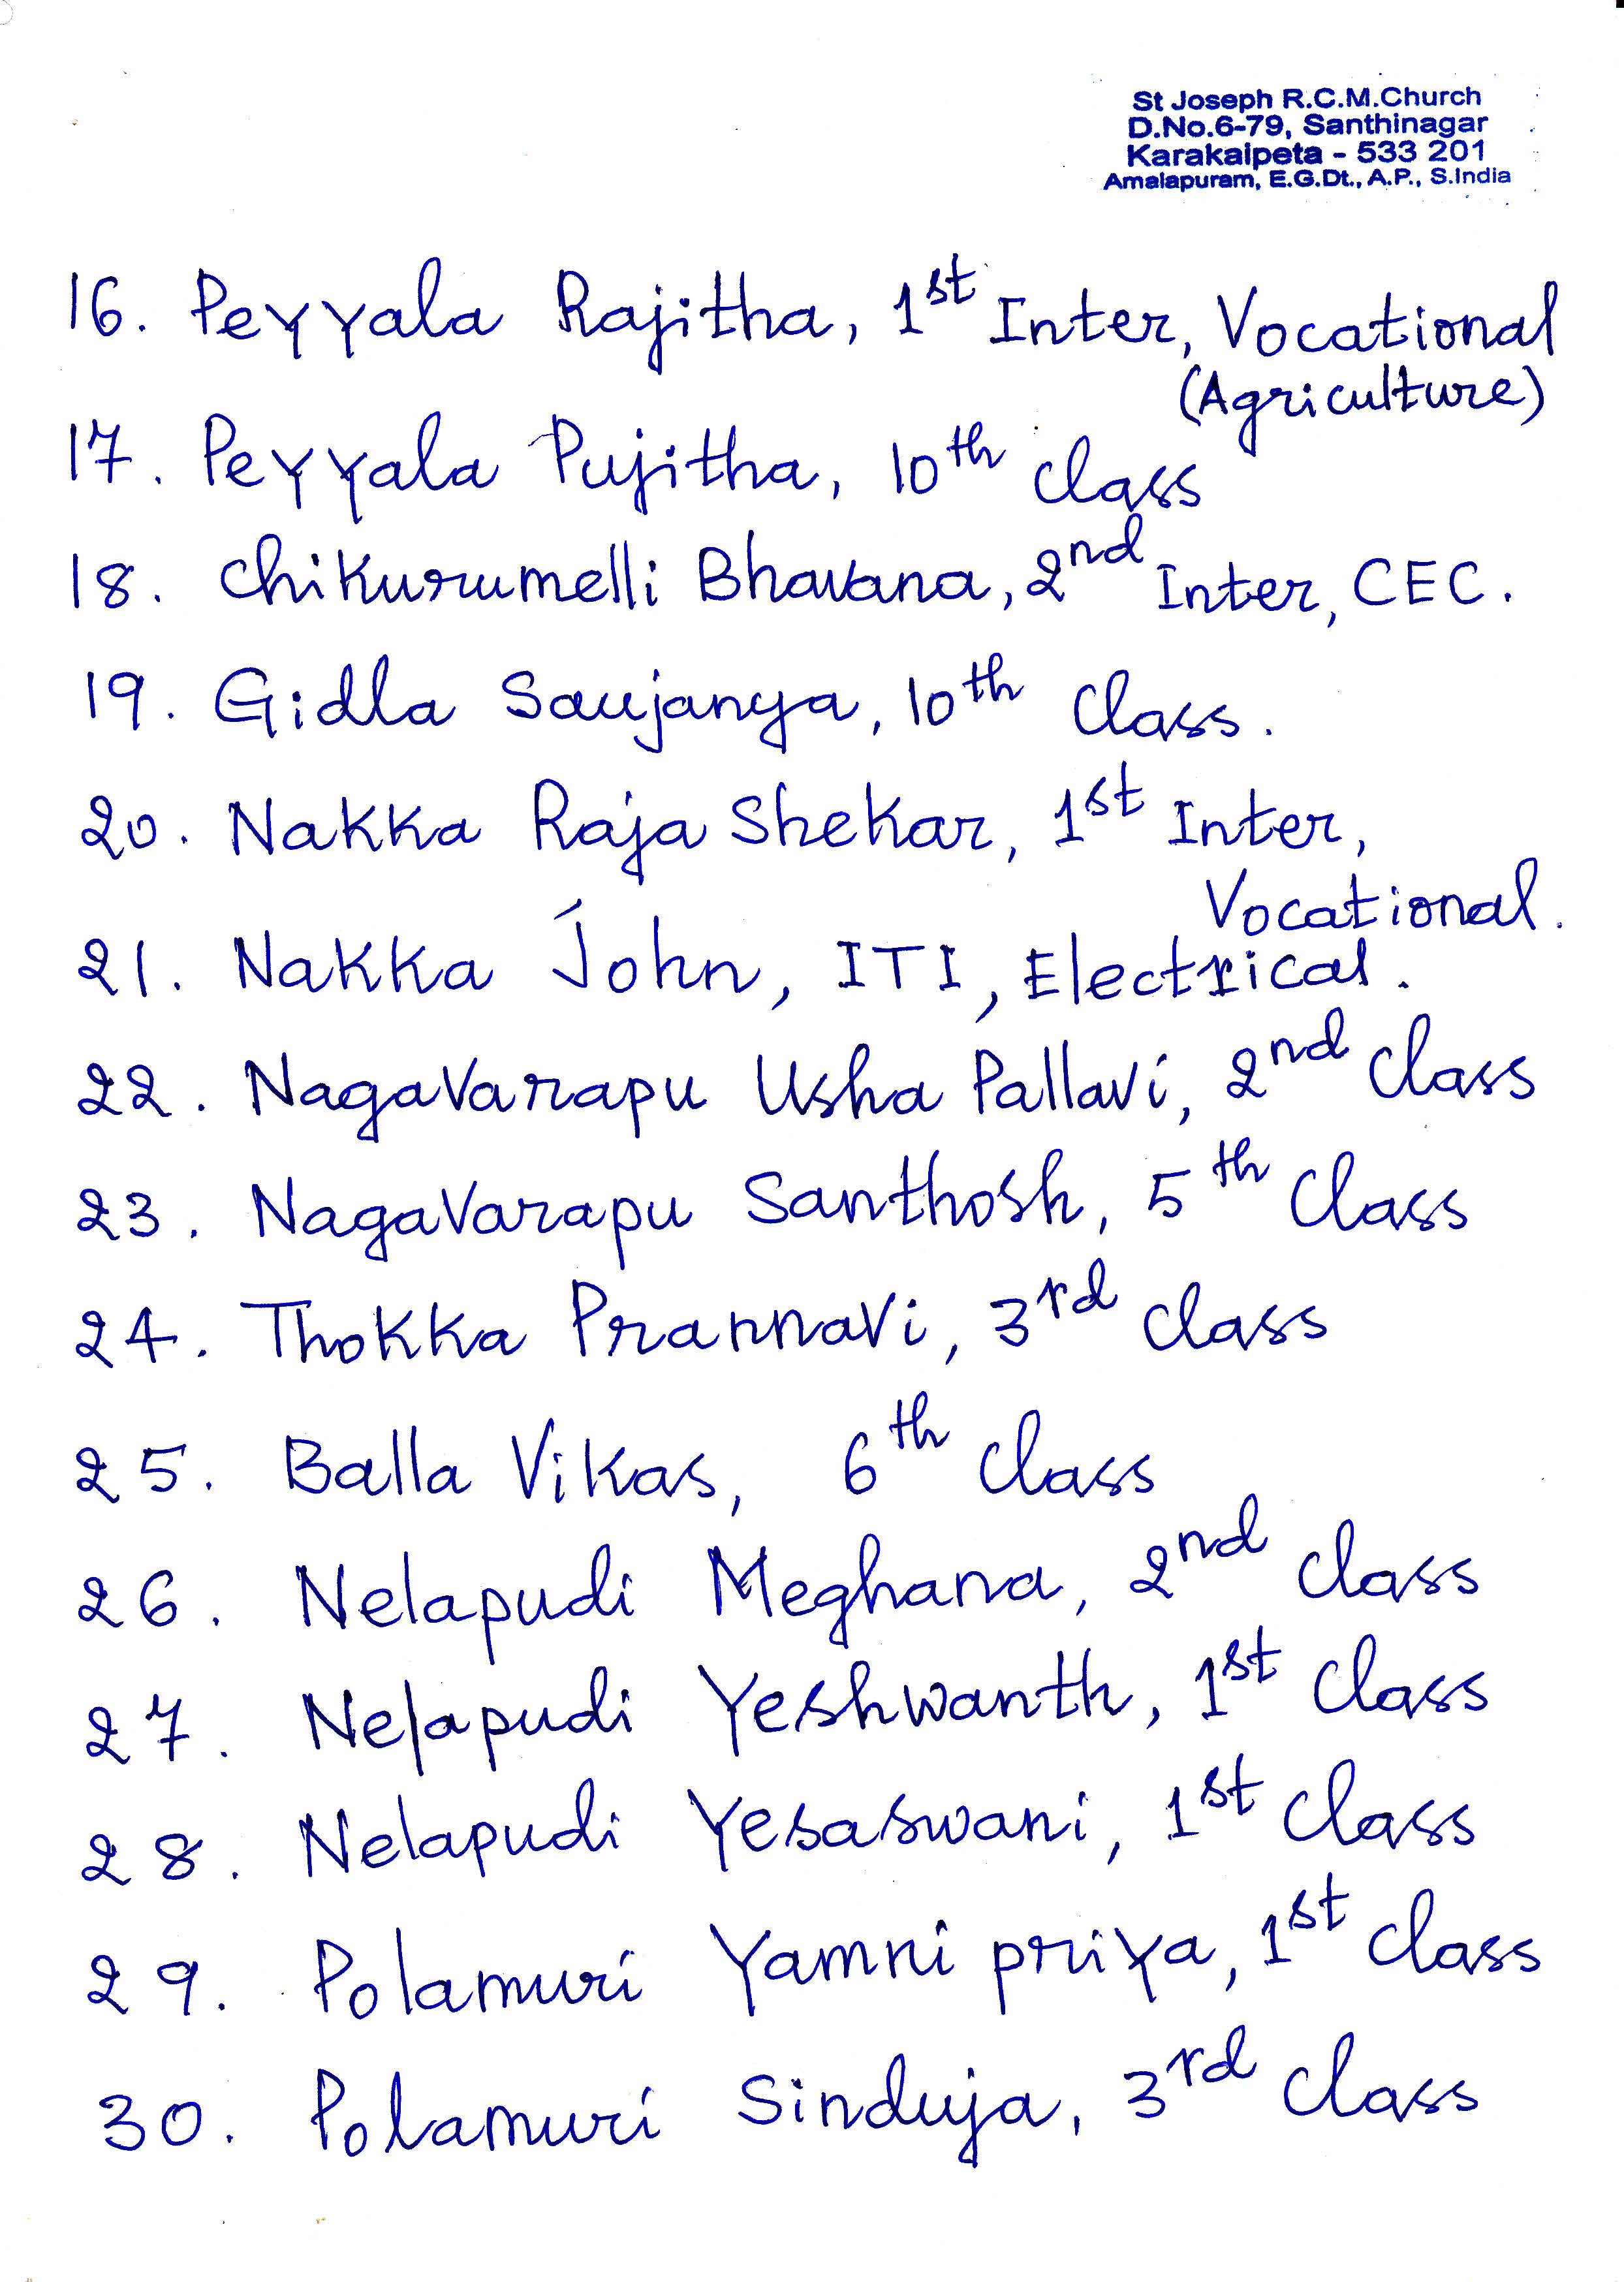 St Joseph R.C.M.Church
D.No.6-79, Santhinagar
Karakalpeta - 533 201
Amalapuram, E.G.Dt., A.P., S.India
16. Peyyala Rajitha, 1st Inter, Vocational
(Agriculture)
17. Peyyala Pujitha, 10th class
18. Chikurumelli Bhavana, 2nd Inter, CEC.
19. Gidla Saujanya, 10th Class.
20. Nakka Raja Shekar, 1st Inter,
Vocational.
21. Nakka John, ITI, Electrical.
22. Nagavarapu Usha Pallavi, 2nd Class
23. Nagavarapu Santhosh, 5th Class
24. Thokka Prannavi, 3rd class
25. Balla Vikas, 6th Class
26. Nelapudi Meghana, 2nd class
27. Nelapudi Yeshwanth, 1st Class
28. Nelapudi Yesaswani, 1st Class
29. Polamuri Yamni priya, 1st class
30. Polamuri Sinduja, 3rd class